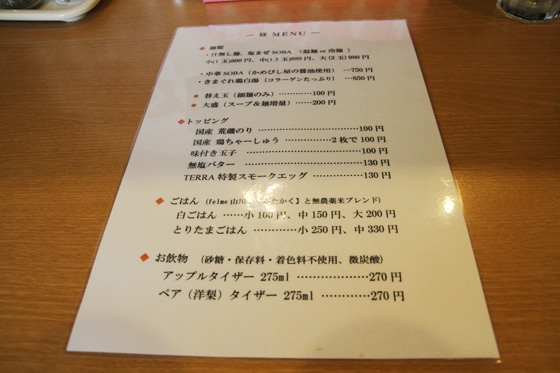 ― 昼 MENU ―
◆ 麺類
・汁無し麺、塩まぜSOBA （温麺 or 冷麺 ）
小(1 玉)800円、中(1.5 玉)880円、大(2玉)980円
・中華SOBA（かめびし屋の醤油使用） …750円
・きまぐれ鶏白湯（コラーゲンたっぷり） …850円
◆ 替え玉（細麺のみ）…………100円
◆ 大盛（スープ&麺増量）……200円
◆トッピング
国産 荒磯のり ………………………100円
国産 鶏ちゃーしゅう ……………2枚で100円
味付き玉子 ……………………………100円
無塩バター ……………………………130円
TERRA特製スモークエッグ ……………130円
◆ ごはん （felme山川 たかく】と無農薬米ブレンド）
白ごはん ……小100円、中150円、大200円
とりたまごはん …………小250円、中330円
◆ お飲物 （砂糖・保存料・着色料不使用、微炭酸）
アップルタイザー 275ml ………………270円
ペア（洋梨）タイザー 275ml …………270円